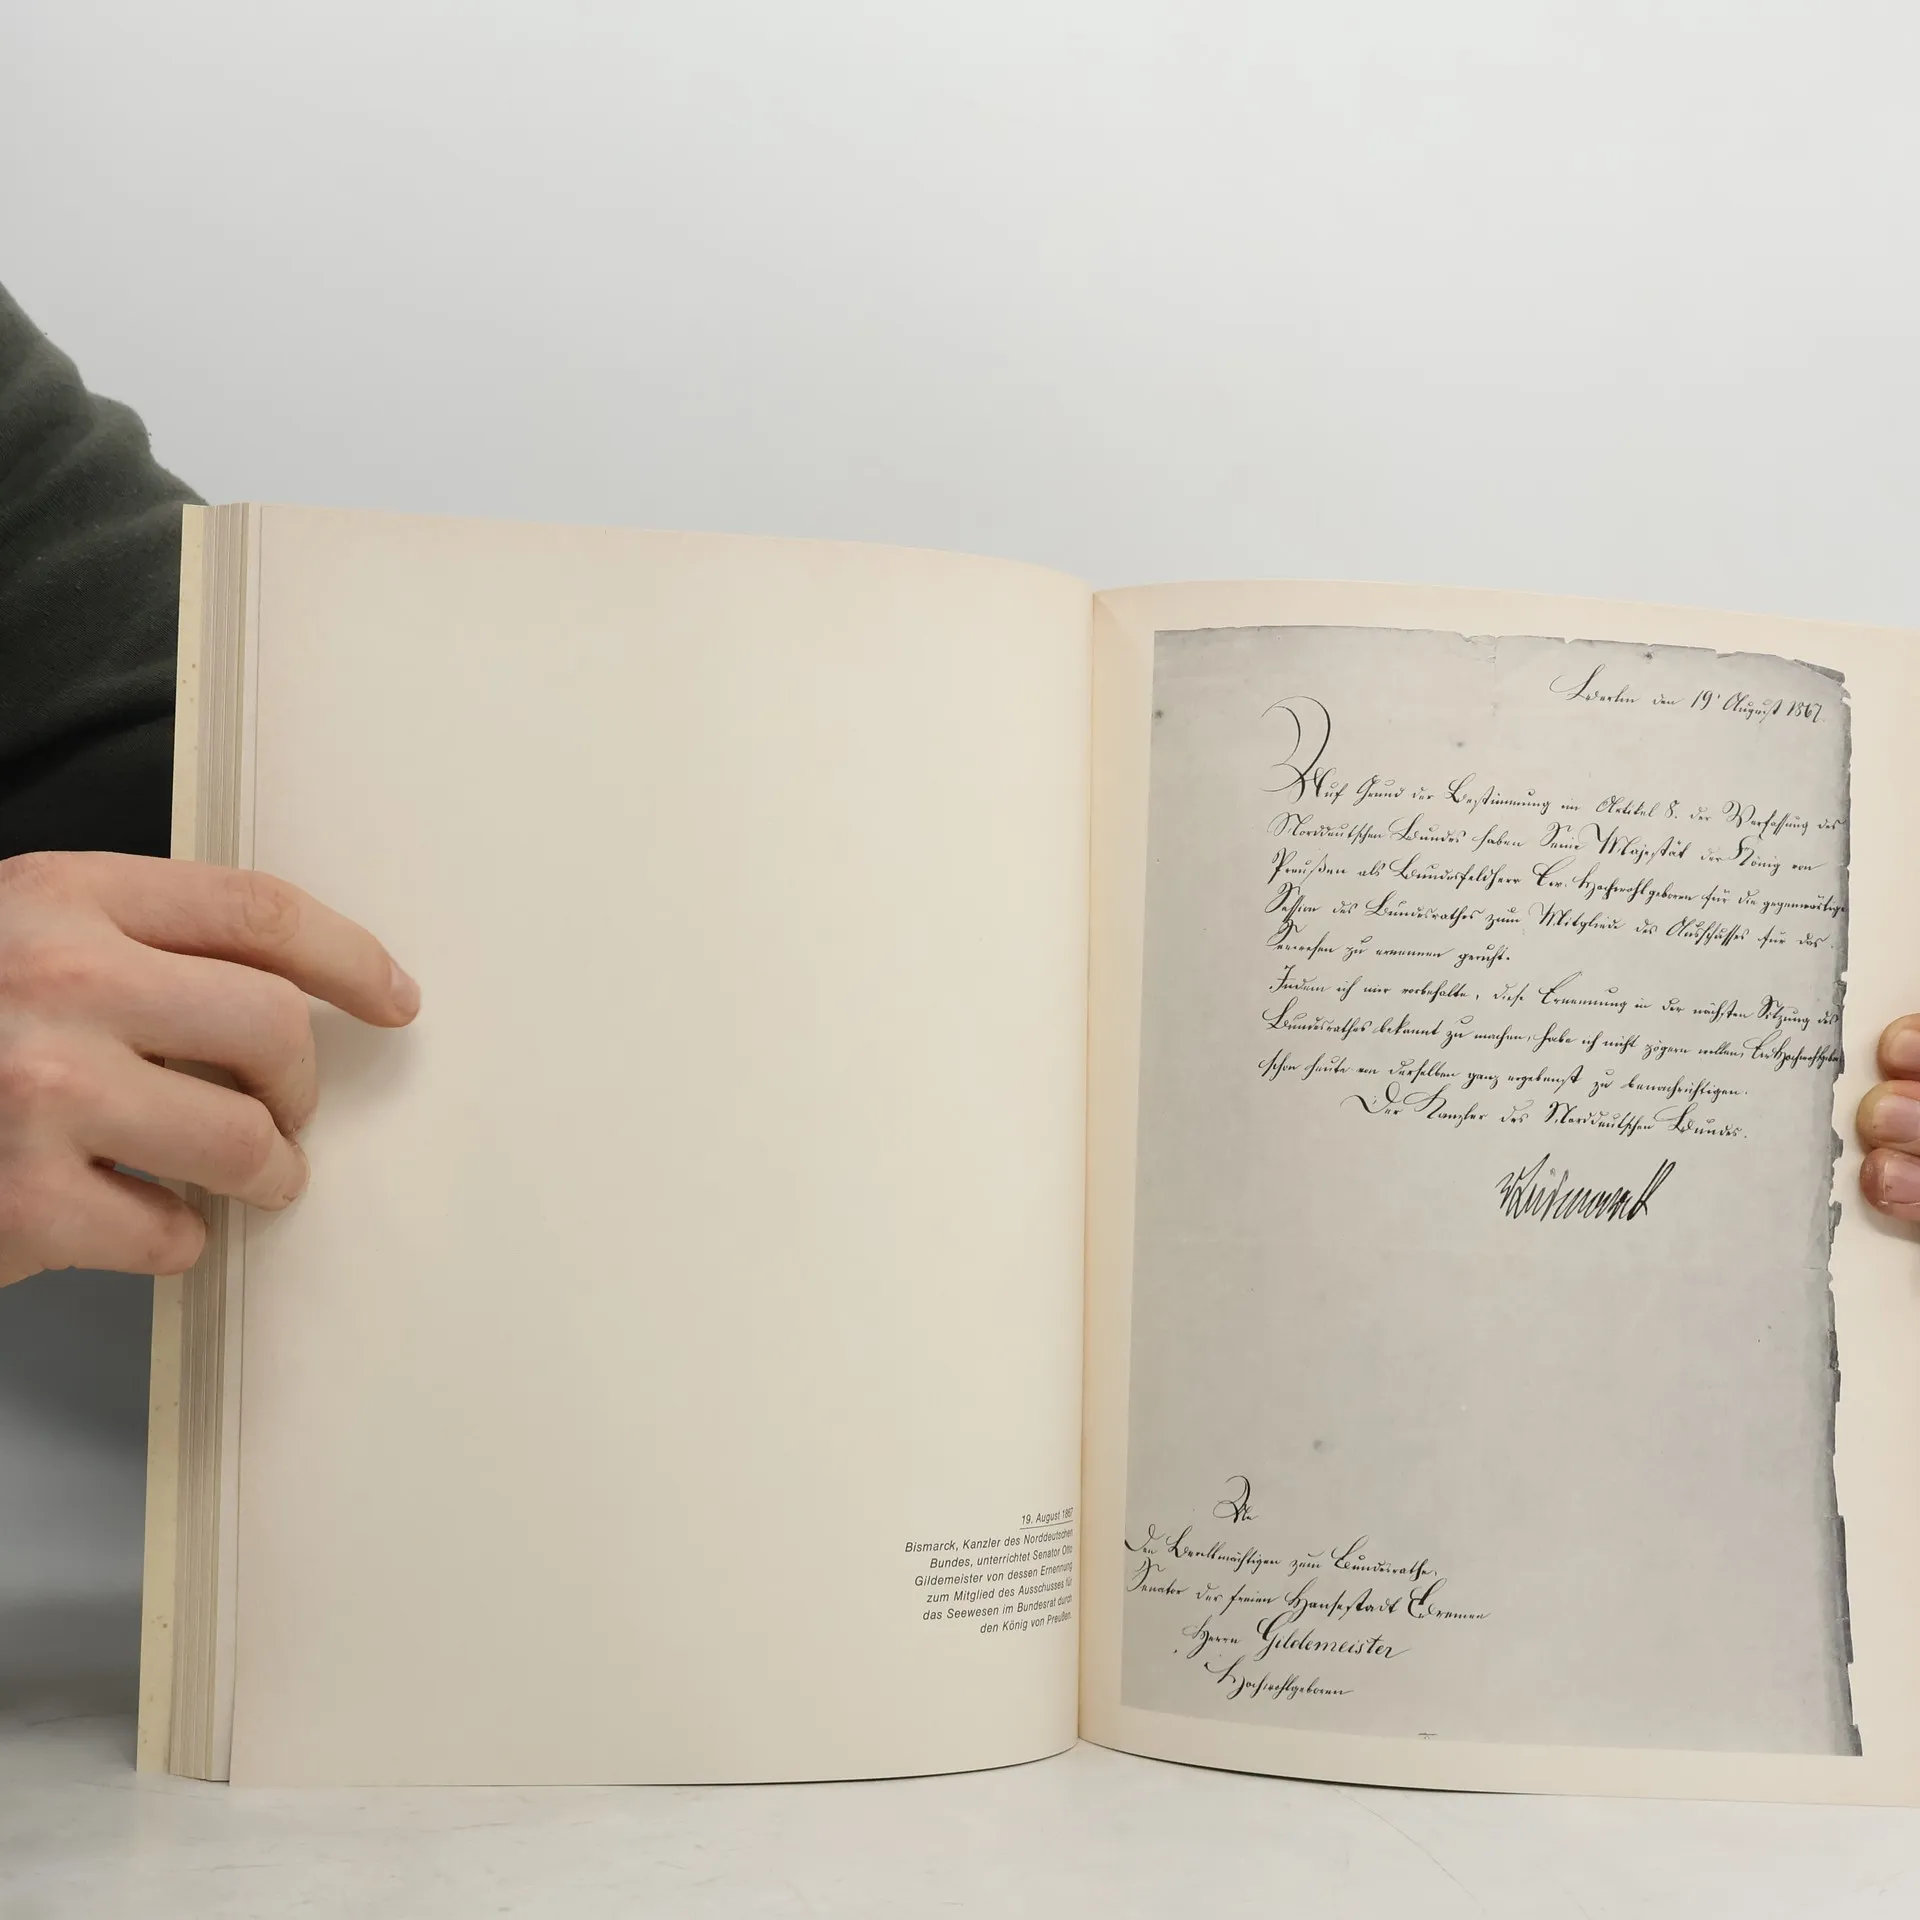 19. August 1867
Bismarck, Kanzler des Norddeutschen
Bundes, unterrichtet Senator Otto
Gildemeister von dessen Ernennung
zum Mitglied des Ausschusses für
das Seewesen im Bundesrat durch
den König von Preußen.
Berlin den 19' August 1867.
Auf Grund der Bestimmung im Artikel 8. der Verfassung des
Norddeutschen Bundes haben Seine Majestät der König von
Preußen als Bundesfeldherr Ew. Hochwohlgeboren für die gegenwärtige
Session des Bundesrathes zum Mitgliede des Ausschusses für das
Seewesen zu ernennen geruht.
Indem ich mir vorbehalte, diese Ernennung in der nächsten Sitzung des
Bundesrathes bekannt zu machen, habe ich nicht zögern wollen, Ew Hochwohlgeboren
schon heute von derselben ganz ergebenst zu benachrichtigen.
Der Kanzler des Norddeutschen Bundes.
vBismarck
An
Den Bevollmächtigten zum Bundesrathe,
Senator der freien Hansestadt Bremen
Herrn Gildemeister
Hochwohlgeboren